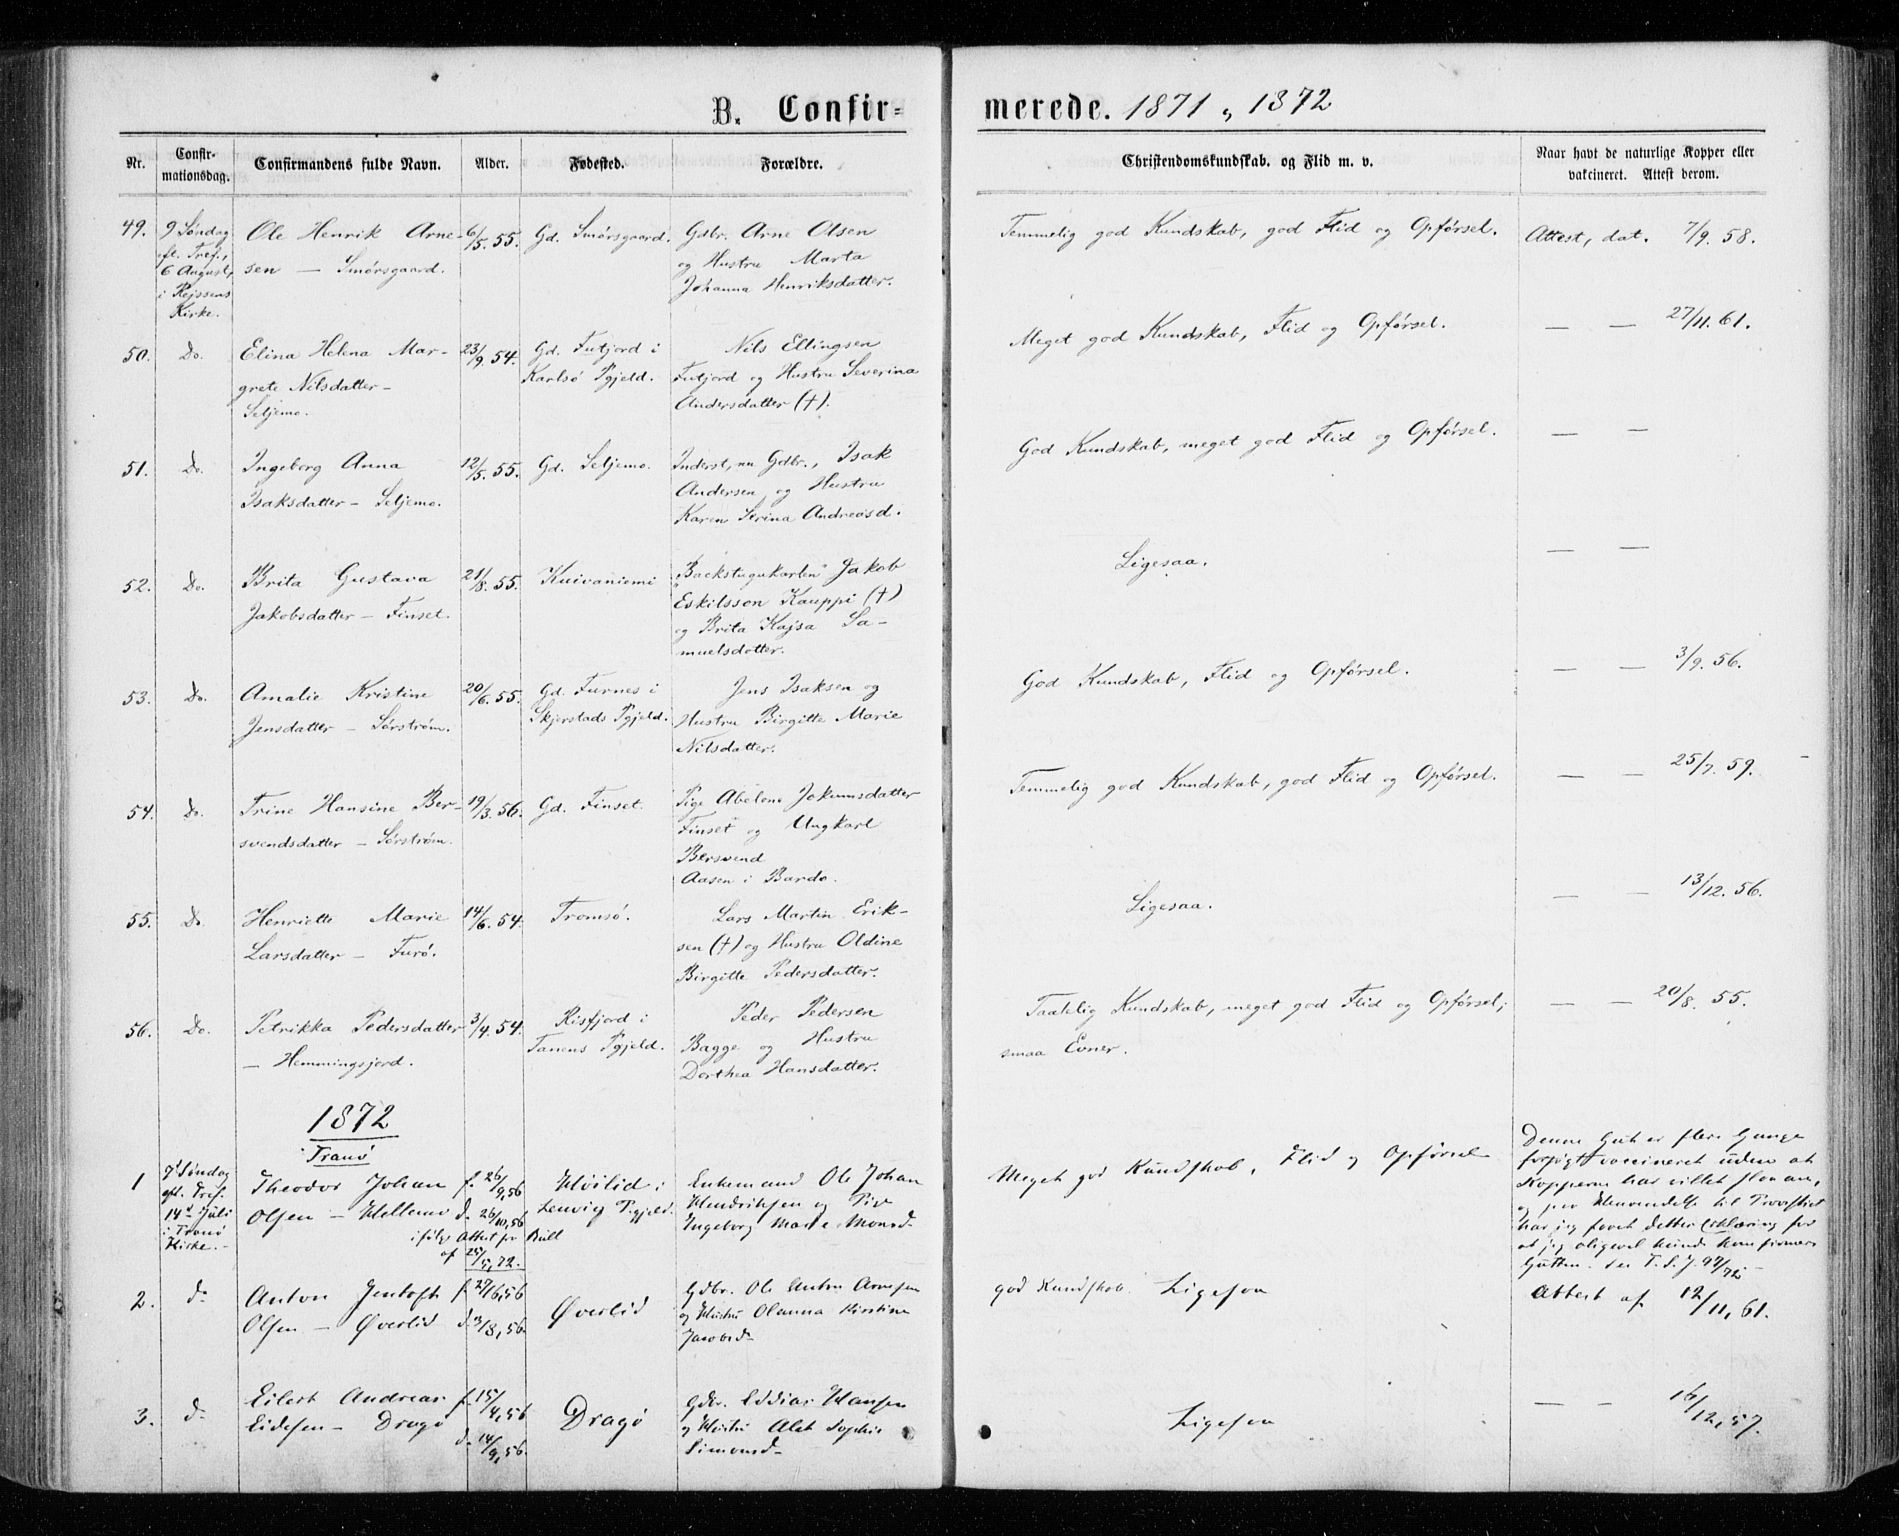 B. Confir-
merede. 1871 „ 1872
Nr.
Confir-
mationsdag.
Confirmandens fulde Navn.
Alder.
Fødested.
Forældre.
Christendomskundskab. og Flid m. v.
Naar havt de naturlige Kopper eller
vakcineret. Attest derom.
49. 9 Søndag Ole Henrik Arne- 6/5. 55. Gd. Smørsgaard. Gdbr. Arne Olsen Temmelig god Kundskab, god Flid og Opførsel. Attest, dat. 7/9. 58.
eft. Tref., sen — Smørsgaard. og Hustru Marta
6 August, Johanna Henriksdatter.
i Rejssens
Kirke.
50. Do. Elina Helena Mar- 23/9. 54. Gd. Futjord i Nils Ellingsen Meget god Kundskab, Flid og Opførsel. — — 27/11. 61.
grete Nilsdatter — Karlsø Pgjeld. Futjord og Hustru Severina
Seljemo. Andersdatter (†).
51. Do. Ingeborg Anna 12/5. 55. Gd. Seljemo. Inderst, nu Gdbr., Isak God Kundskab, meget god Flid og Opførsel. — —
Isaksdatter — Seljemo. Andersen og Hustru
Karen Serina Andreasd.
52. Do. Brita Gustava 21/8. 55. Kuivaniemi "Backstugukarlen" Jakob Ligesaa. — —
Jakobsdatter — Finset. Eskilsson Kauppi (†)
og Brita Kajsa Sa-
muelsdotter.
53. Do. Amalie Kristine 20/6. 55. Gd. Furnes i Jens Isaksen og God Kundskab, Flid og Opførsel. — — 3/9. 56.
Jensdatter — Sørstrøm. Skjerstads Pgjeld. Hustru Birgitte Marie
Nilsdatter.
54. Do. Trine Hansine Ber- 19/3. 56. Gd. Finset. Pige Abelone Jokumsdatter Temmelig god Kundskab, god Flid og Opførsel. — — 25/7. 59.
svendsdatter — Sørstrøm. Finset og Ungkarl
Bersvend
Aasen i Bardo.
55. Do. Henriette Marie 14/6. 54. Tromsø. Lars Martin Erik- Ligesaa. — — 13/12. 56.
Larsdatter — Furø. sen (†) og Hustru Oldine
Birgitte Pedersdatter.
56. Do. Petrikka Pedersdatter 3/4. 54. Risfjord i Peder Pedersen Taalelig Kundskab, meget god Flid og Opførsel; — — 20/8. 55.
— Hemmingsjord. Tanens Pgjeld. Bagge og Hustru smaa Evner.
Dorthea Hansdatter.
1872
Tranø
1 7d Søndag Theodor Johan f. 26/9, 56 Høilid i Enkemand Ole Johan Meget god Kundskab, Flid og Opførsel Denne Gut er flere Gange
eft. Tref. Olsen — d. 26/10, 56 Lenvig Pgjeld. Hendriksen og Pige forsøgt vaccineret uden at
14d Juli ifølge Attest fr Rutl Ingeborg Marie Monsd. Kopperne har villet slaa an,
i Tranø af 25/5, 72. og per Henvendelse til Provstiet
Kirke. har jeg faaet dettes Erklæring for
at jeg aligevel kunde konfirmere
Gutten. See T. S. J. 97/72
2. do Anton Jentoft f. 27/6, 56 Øverlid Gdbr. Ole Arnesen god Kundskab. Ligesaa Attest af 12/11, 61.
Olsen — Øverlid d. 3/8, 56. og Hustru Olanna Kirstine
Jacobsd.
3. do Eilert Andreas f. 15/4, 56 Dragø Gdbr. Hansen Ligesaa — — 16/12, 57.
Eidesen — Dragø d. 14/9, 56. og Hustru Alet Sophie
Simonsd.